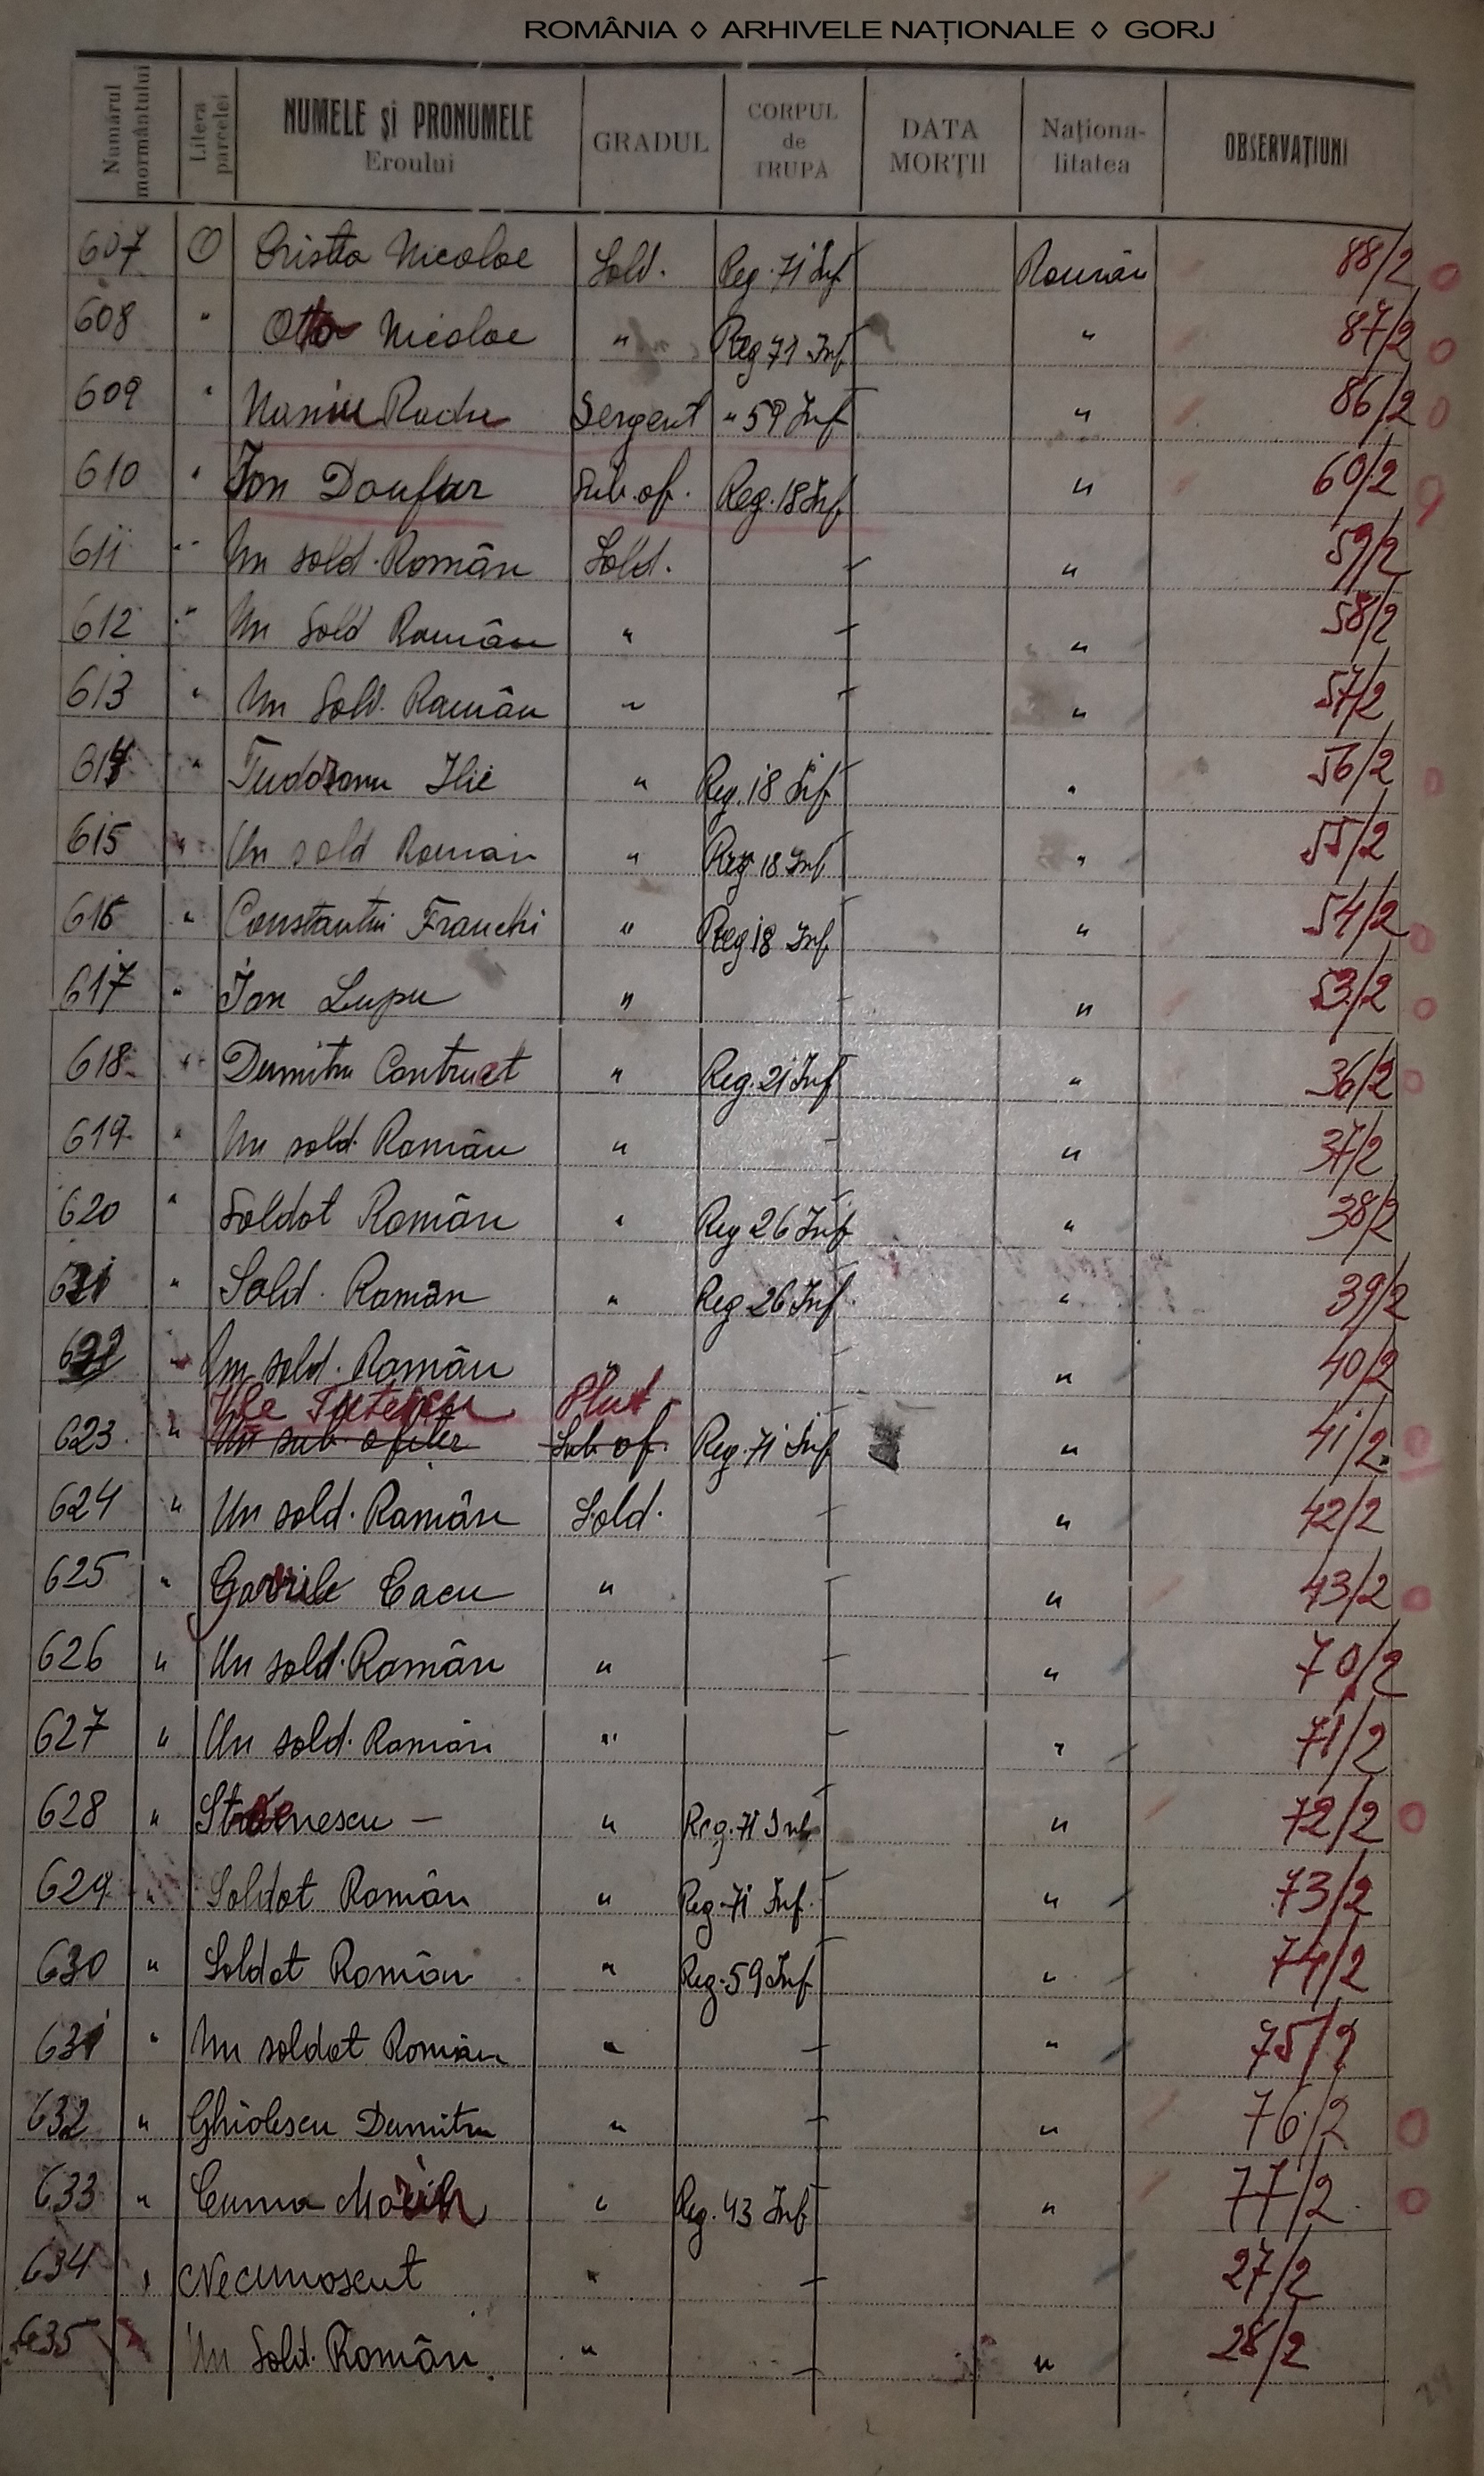 ROMÂNIA ◊ ARHIVELE NAȚIONALE ◊ GORJ
Numărul mormântului Litera parcelei NUMELE și PRONUMELE Eroului GRADUL CORPUL de TRUPĂ DATA MORȚII Naționalitatea OBSERVAȚIUNI
607 O Cristea Nicolae Sold. Reg. 71 Inf Român 88/2 0
608 " Otto Nicolae " Reg 71 Inf " 87/2 0
609 " Naniu Radu Sergent " 59 Inf " 86/2 0
610 " Ion Doufar Sub.of. Reg. 18 Inf " 60/2
611 " Un sold. Român Sold. " 59/2
612 " Un Sold Român " " 58/2
613 " Un Sold. Român " " 57/2
614 " Tudoranu Ilie " Reg. 18 Inf " 56/2 0
615 " Un sold Roman " Reg 18 Inf " 55/2
616 " Constantin Franchi " Reg 18 Inf " 54/2 0
617 " Ion Lupu " " 53/2 0
618 " Dumitru Contruct " Reg. 21 Inf " 36/2 0
619 " Un sold. Român " " 37/2
620 " Soldat Român " Reg 26 Inf " 38/2
621 " Sold. Român " Reg 26 Inf " 39/2
622 " Un sold. Român " 40/2
Ilie Plut
623 " Un sub. ofiter Sub of. Reg. 71 Inf " 41/2 0
624 " Un sold. Român Sold. " 42/2
625 " Gavrile Cacu " " 43/2 0
626 " Un sold. Român " " 70/2
627 " Un sold. Român " " 71/2
628 " Stoenescu — " Reg. 71 Inf " 72/2 0
629 " Soldat Român " Reg. 71 Inf. " 73/2
630 " Soldat Român " Reg. 59 Inf " 74/2
631 " Un soldat Român " " 75/2
632 " Ghiolescu Dumitru " " 76/2 0
633 " Cuma Marin " Reg. 43 Inf " 77/2 0
634 " Necunoscut " 27/2
635 Un Sold. Român " " 28/2